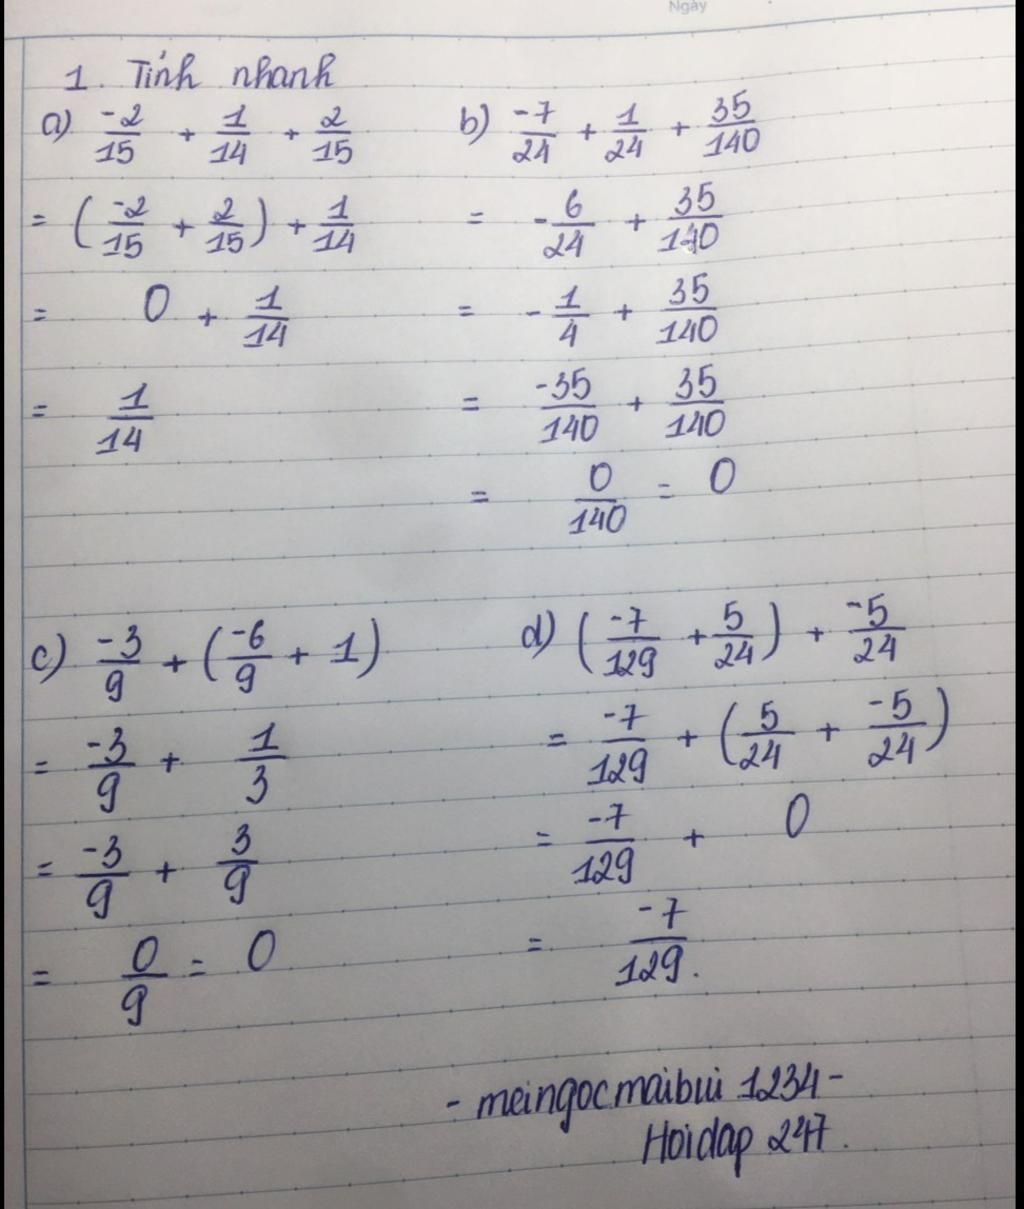 Ngày
1. Tính nhanh
a) -2/15 + 1/14 + 2/15
= (-2/15 + 2/15) + 1/14
= 0 + 1/14
= 1/14
b) -7/24 + 1/24 + 35/140
= -6/24 + 35/140
= -1/4 + 35/140
= -35/140 + 35/140
= 0/140 = 0
c) -3/9 + (-6/9 + 1)
= -3/9 + 1/3
= -3/9 + 3/9
= 0/9 = 0
d) (-7/129 + 5/24) + -5/24
= -7/129 + (5/24 + -5/24)
= -7/129 + 0
= -7/129.
- meingocmaibui 1234 -
Hoidap 247.